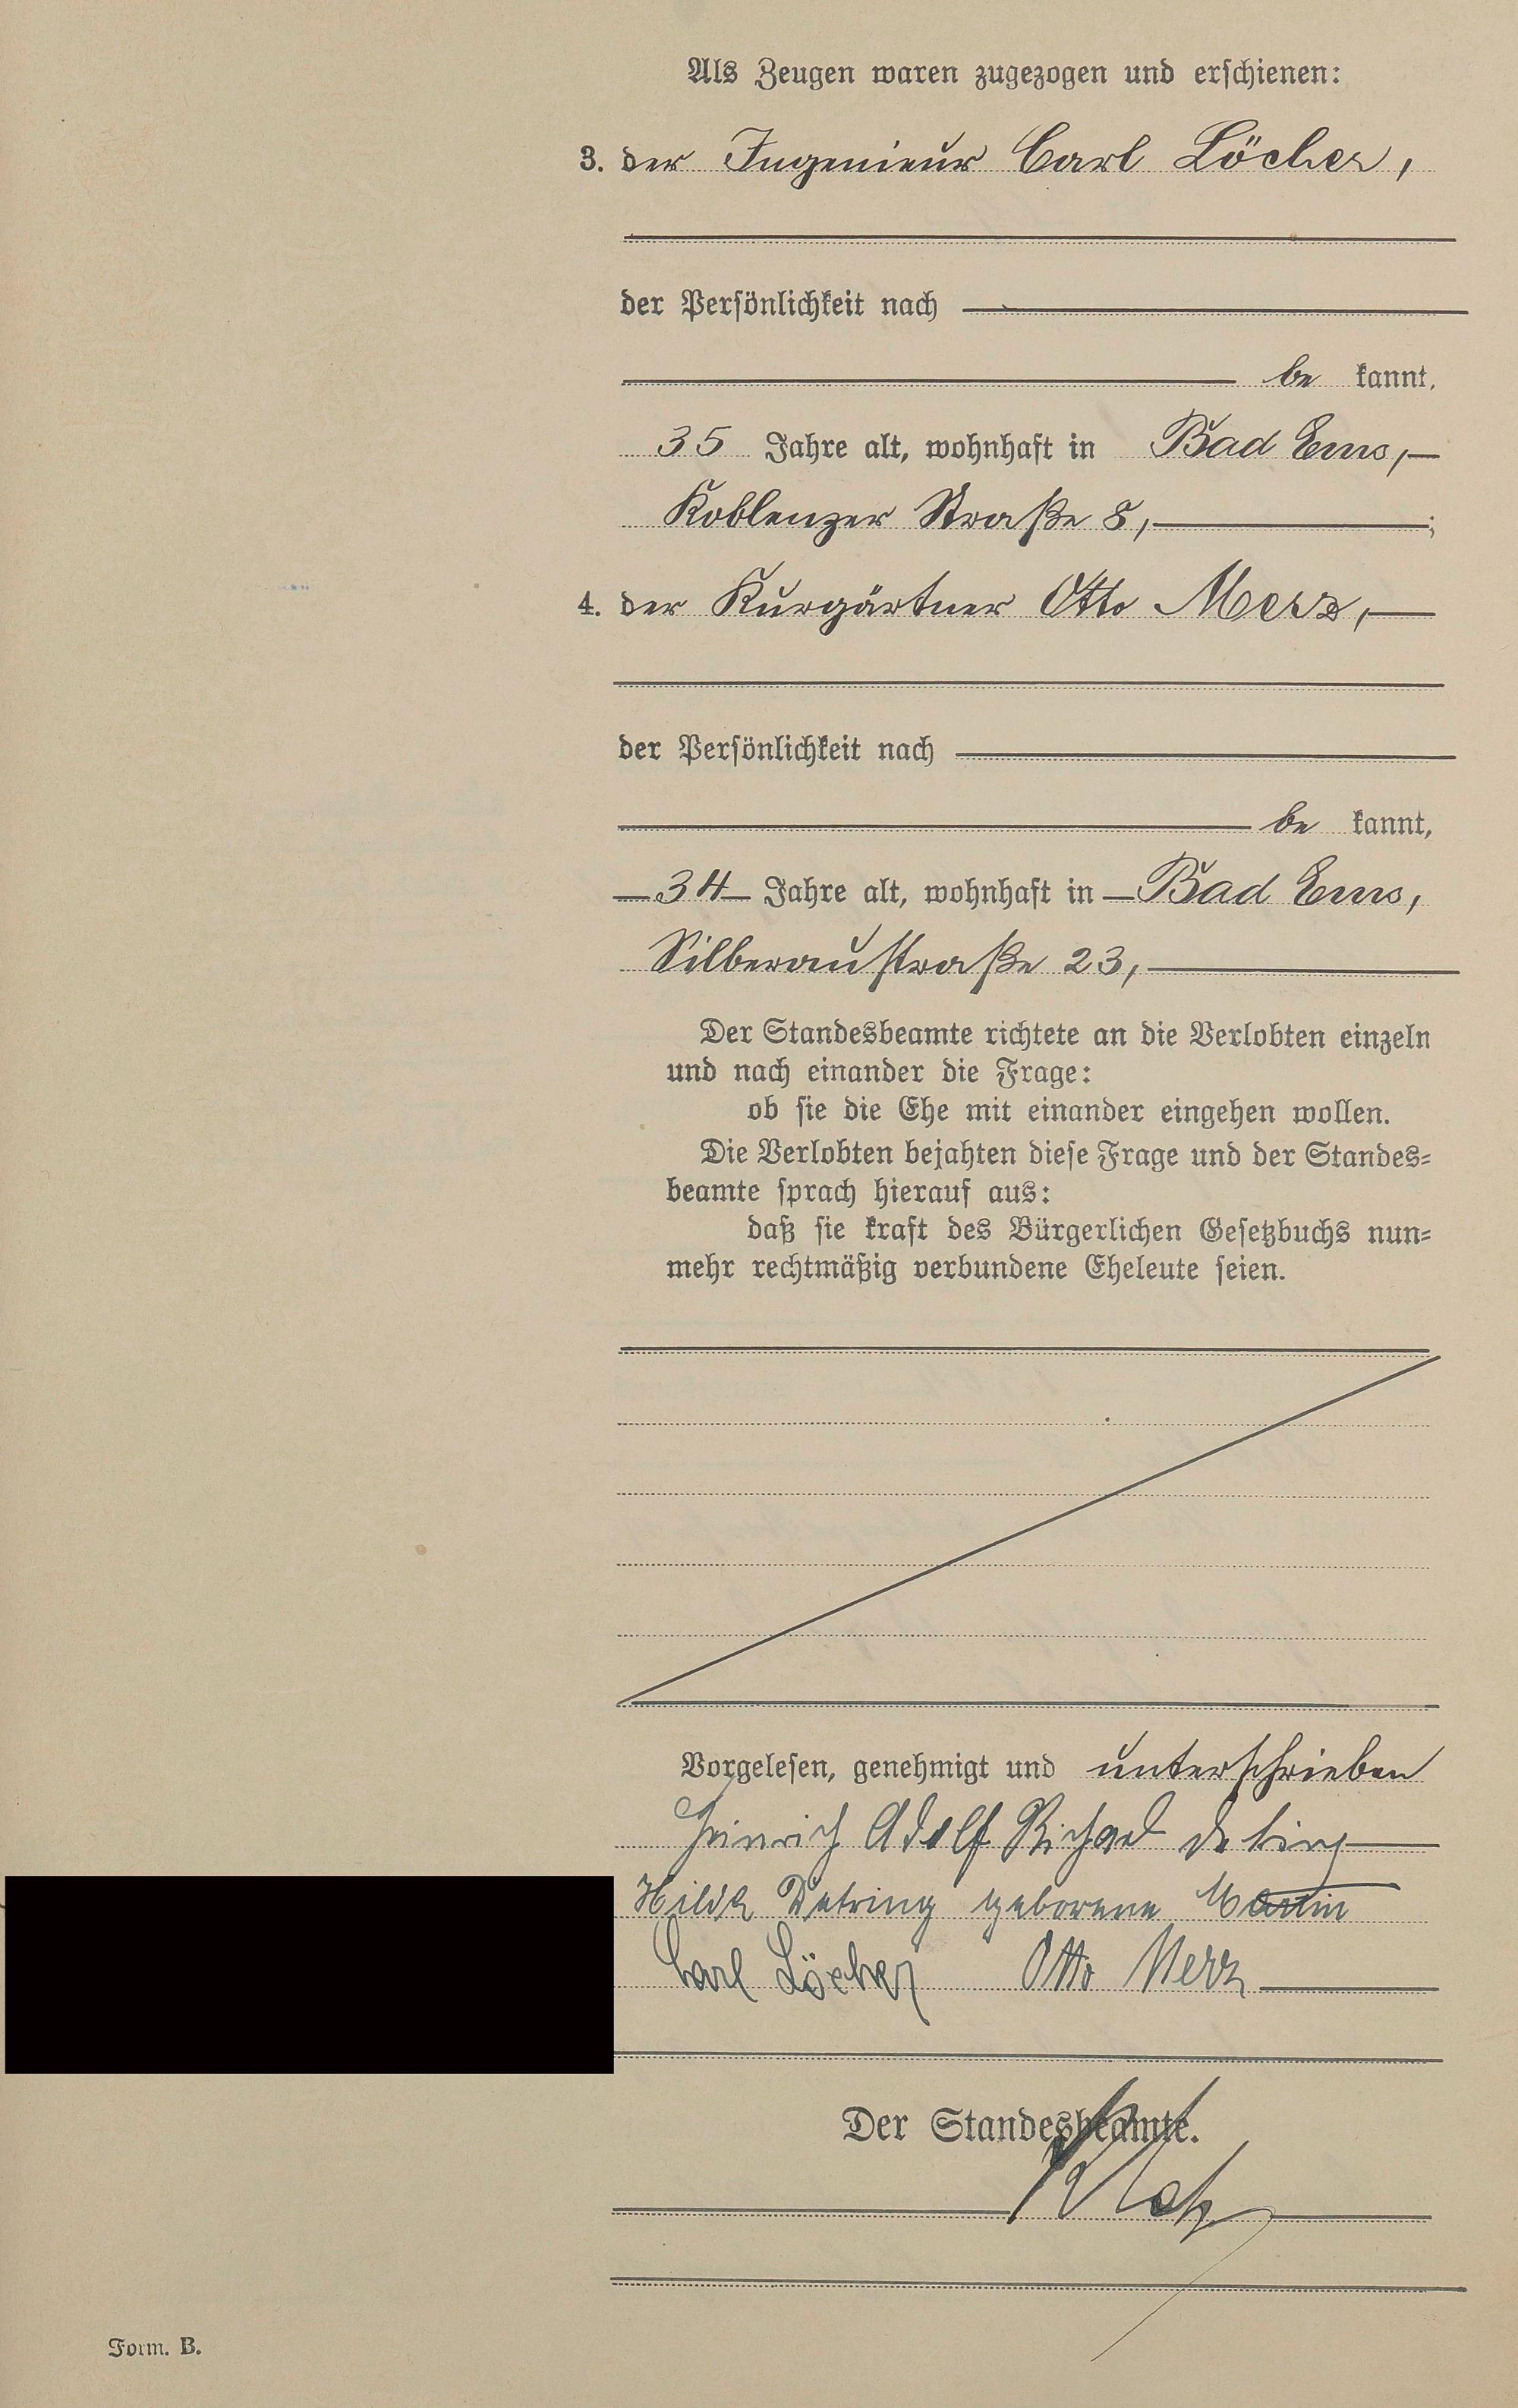 Als Zeugen waren zugezogen und erschienen:
3. der Ingenieur Carl Löcher,
der Persönlichkeit nach
be kannt,
35 Jahre alt, wohnhaft in Bad Ems,
Koblenzer Straße 8, ;
4. der Kurgärtner Otto Merz,
der Persönlichkeit nach
be kannt,
34 Jahre alt, wohnhaft in Bad Ems,
Silberaustraße 23,
Der Standesbeamte richtete an die Verlobten einzeln
und nach einander die Frage:
ob sie die Ehe mit einander eingehen wollen.
Die Verlobten bejahten diese Frage und der Standes-
beamte sprach hierauf aus:
daß sie kraft des Bürgerlichen Gesetzbuchs nun-
mehr rechtmäßig verbundene Eheleute seien.
Vorgelesen, genehmigt und unterschrieben
Heinrich Adolf Richard Detring
Hilda Detring geborene Martin
Carl Löcher Otto Merz
Der Standesbeamte.
Form. B.